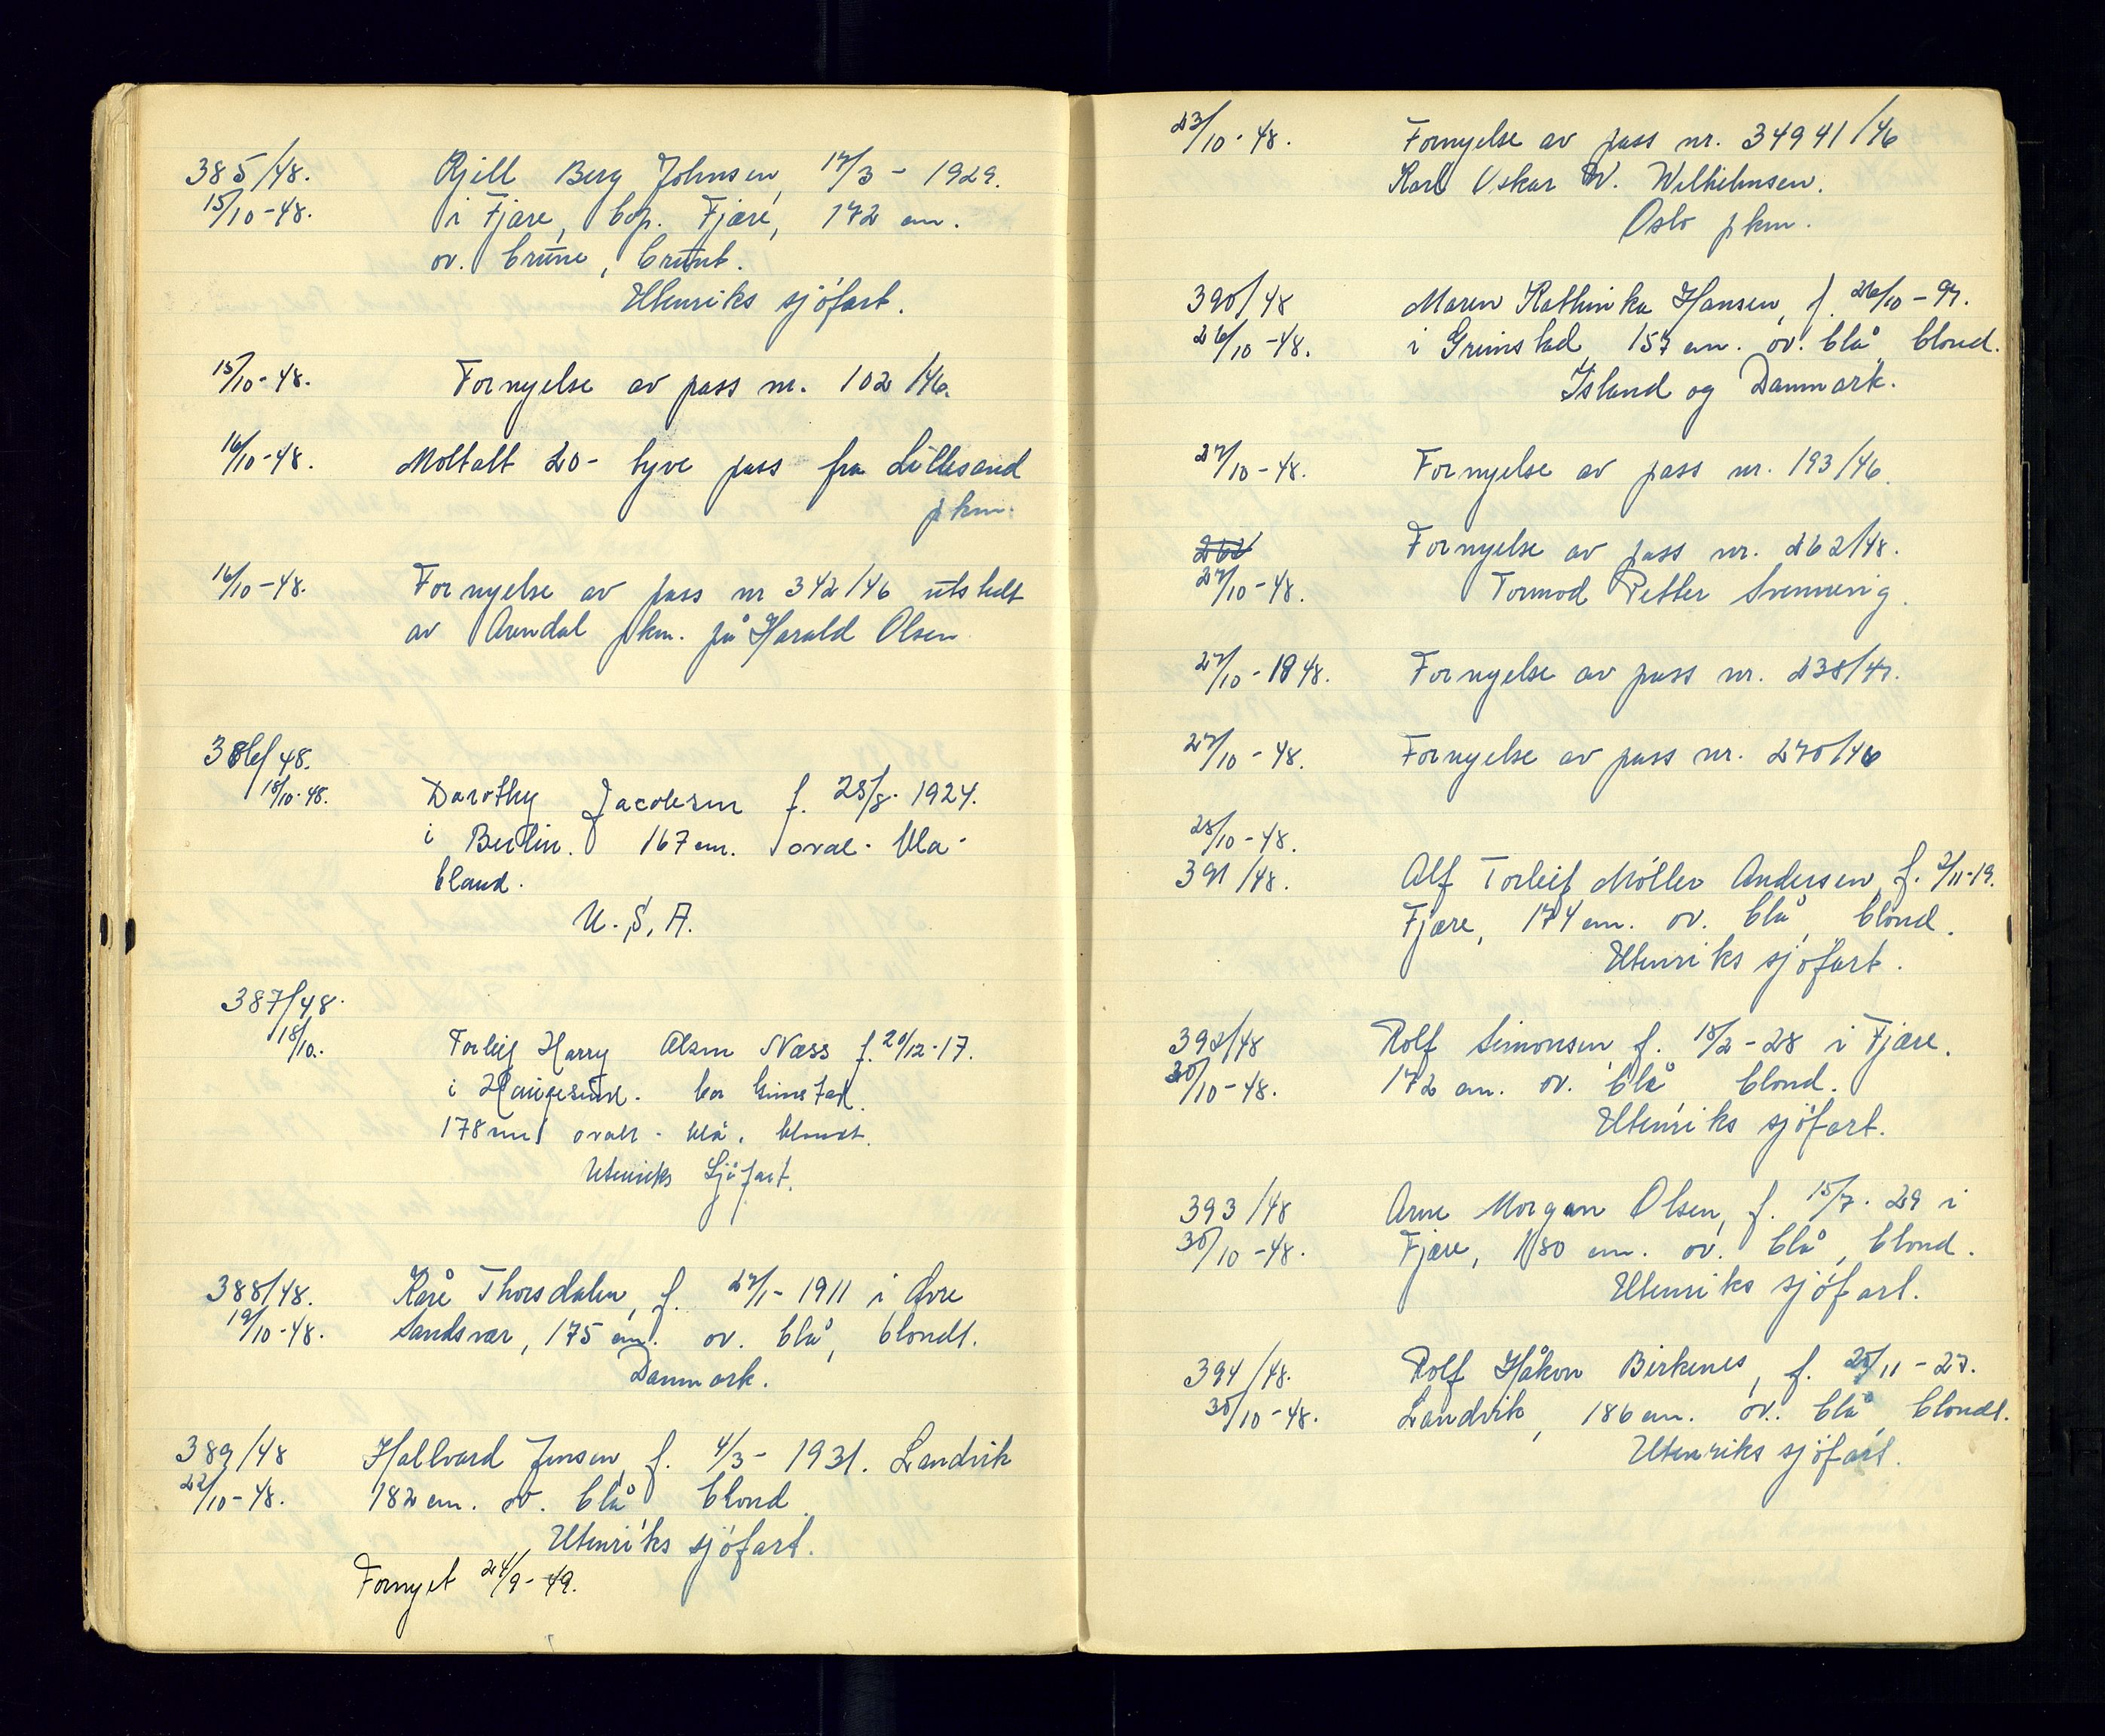 385/48. Kjell Berg Johnsen, 17/3 - 1929.
15/10-48. i Fjære, bop. Fjære, 172 cm.
ov. brune, brunt.
Utenriks sjöfart.
15/10-48. Fornyelse av pass nr. 102/46.
16/10-48. Mottatt 20- tyve pass fra Lillesand
pkm.
16/10-48. Fornyelse av pass nr 342/46 utstedt
av Arendal pkm. på Harald Olsen
386/48.
18/10-48. Dorothy Jacobsen f. 25/8-1924.
i Berlin. 167 cm. oval- bla-
blond.
U.S.A.
387/48.
18/10. Torleif Harry Olsen Næss f. 20/12-17.
i Haugesund. bor Grimstad.
178 cm ovalt - blå, blondt.
Utenriks Sjöfart.
388/48. Kåre Thorsdalen, f. 27/1-1911 i Øvre
19/10-48. Sandsvær, 175 cm. ov. blå, blondt.
Danmark.
389/48 Hallvard Jensen, f. 4/3-1931. Landvik
22/10-48. 182 cm. ov. blå blond.
Utenriks sjöfart.
Fornyet 24/9-49.
23/10-48. Fornyelse av pass nr. 34941/46
Karl Oskar W. Wilhelmsen.
Oslo pkm.
390/48 Maren Kathinka Hansen, f. 26/10-97.
26/10-48. i Grimstad, 157 cm. ov. blå blond.
Island og Danmark.
27/10-48. Fornyelse av pass nr. 193/46.
262 Fornyelse av pass nr. 262/48.
27/10-48. Tormod Petter Svennevig.
27/10-1948. Fornyelse av pass nr. 238/47.
27/10-48. Fornyelse av pass nr. 270/46
28/10-48.
391/48. Alf Torleif Möller Andersen, f. 2/11-19.
Fjære, 174 cm. ov. blå, blond.
Utenriks sjöfart.
392/48 Rolf Simonsen, f. 18/2-28 i Fjære.
30/10-48. 172 cm. ov. blå blond.
Utenriks sjöfart.
393/48 Arne Morgan Olsen, f. 15/7-29 i
30/10-48. Fjære, 180 cm. ov. blå, blond.
Utenriks sjöfart.
394/48. Rolf Håkon Birkenes, f. 25/11-27.
30/10-48. Landvik, 186 cm. ov. blå blondt.
Utenriks sjöfart.